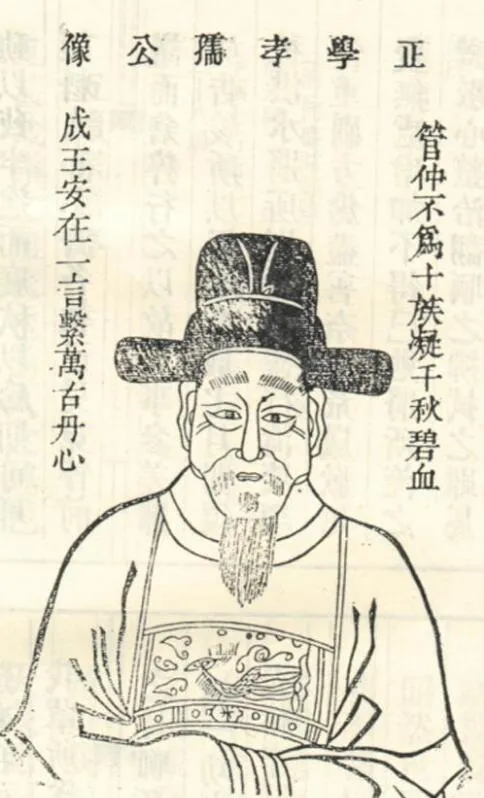 正學孝孺公像
管仲不爲十族凝千秋碧血
成王安在一言繫萬古丹心